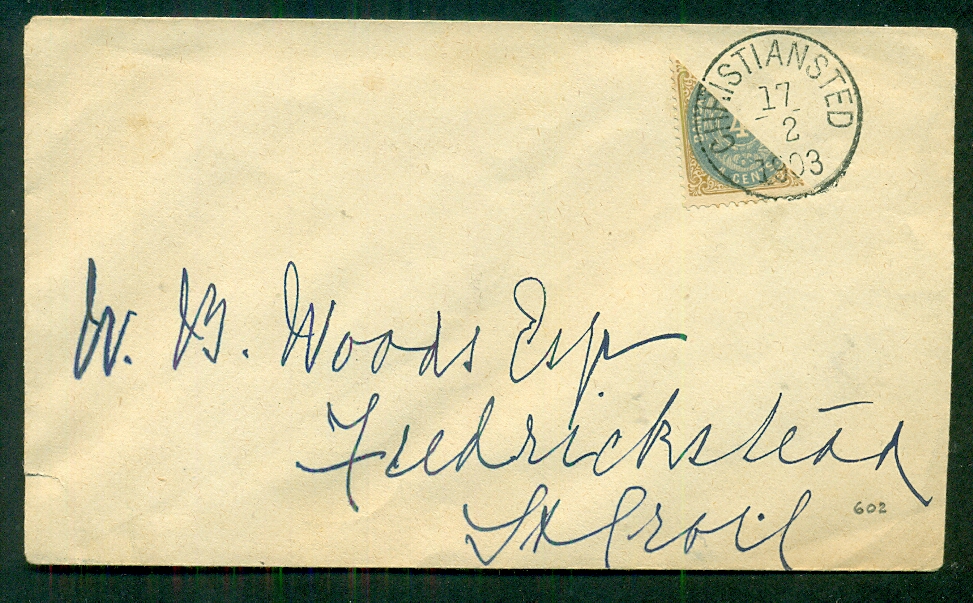 CHRISTIANSTED
17
2
1903
4
CENT
W. B. Woods Esq
Fredrickstead
St Croix
602